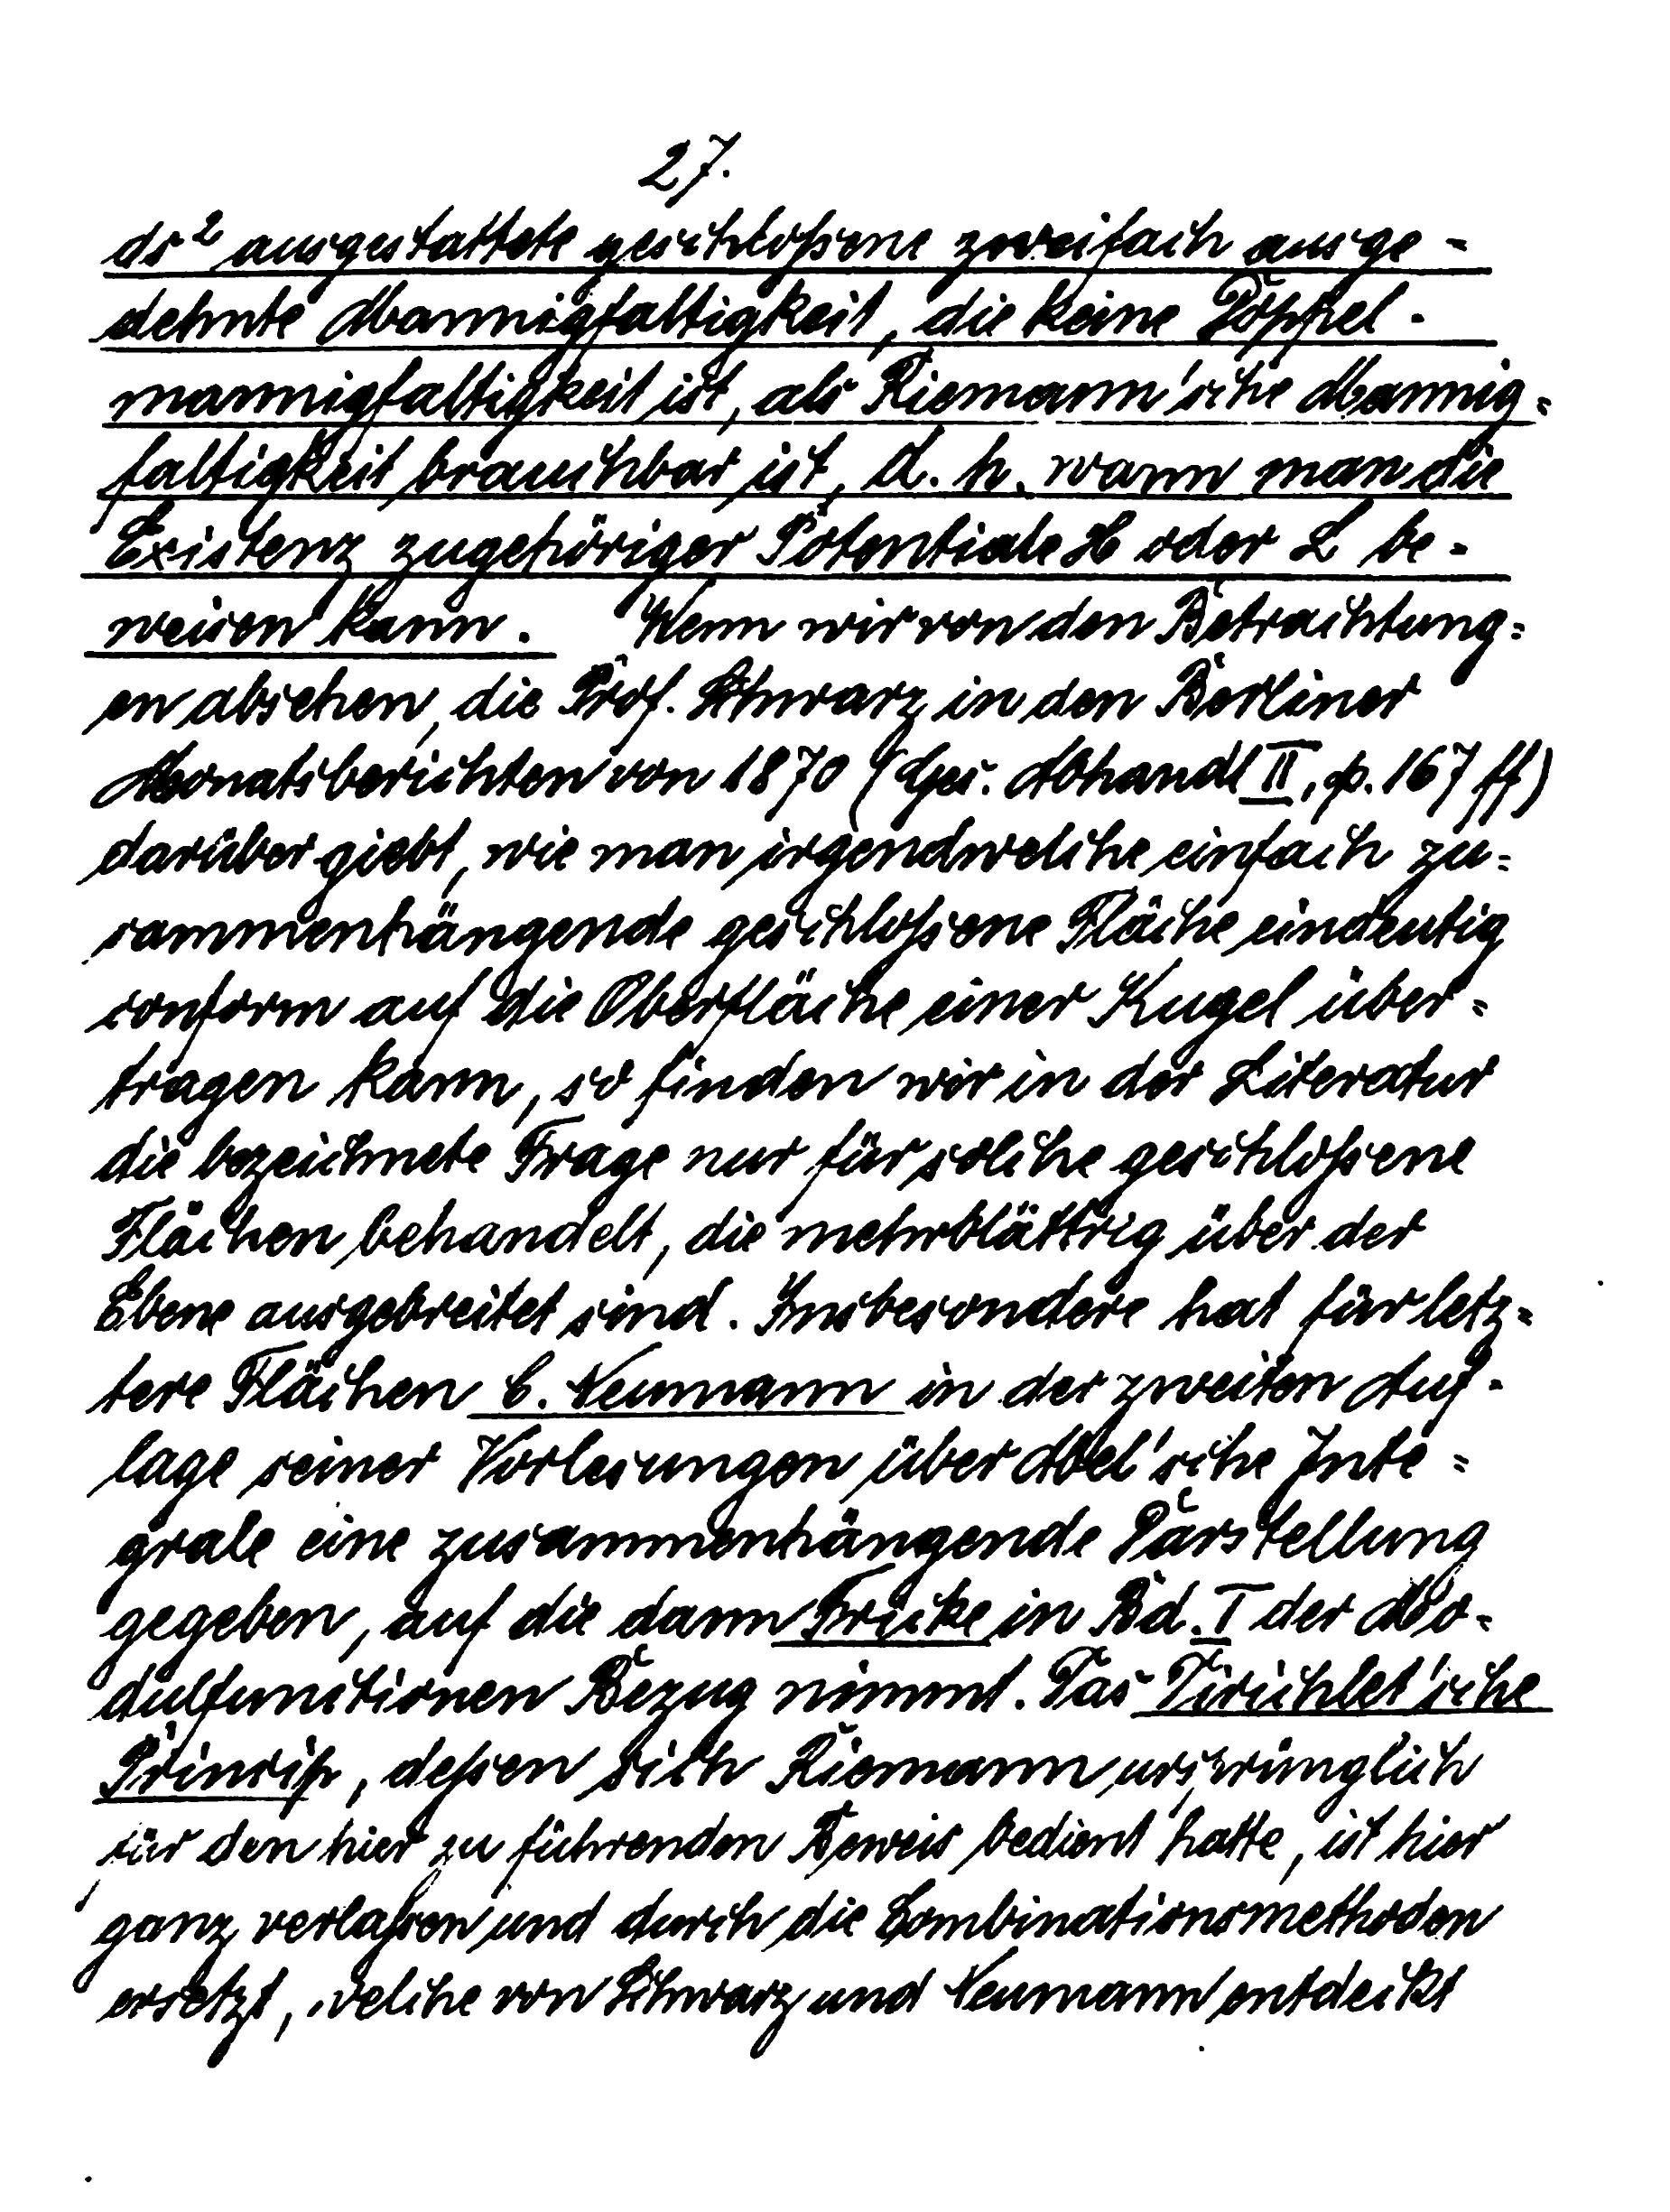 27.
ds² ausgestattete geschloßene zweifach ausge-
dehnte Mannigfaltigkeit, die keine Doppel-
mannigfaltigkeit ist, als Riemann'sche Mannig-
faltigkeit brauchbar ist, d. h. wann man die
Existenz zugehöriger Potentiale H oder L be-
weisen kann. Wenn wir von den Betrachtung-
en absehen, die Prof. Schwarz in den Berliner
Monatsberichten von 1870 (Ges. Abhandl II, p. 167 ff)
darüber giebt, wie man irgendwelche einfach zu-
sammenhängende geschloßene Fläche eindeutig
conform auf die Oberfläche einer Kugel über-
tragen kann, so finden wir in der Literatur
die bezeichnete Frage nur für solche geschloßene
Flächen behandelt, die mehrblättrig über der
Ebene ausgebreitet sind. Insbesondere hat für letz-
tere Flächen C. Neumann in der zweiten Auf-
lage seiner Vorlesungen über Abel'sche Inte-
grale eine zusammenhängende Darstellung
gegeben, auf die dann Fricke in Bd. I der Mo-
dulfunctionen Bezug nimmt. Das Dirichlet'sche
Princip, deßen sich Riemann ursprünglich
für den hier zu führenden Beweis bedient hatte, ist hier
ganz verlaßen und durch die Combinationsmethoden
ersetzt, welche von Schwarz und Neumann entdeckt